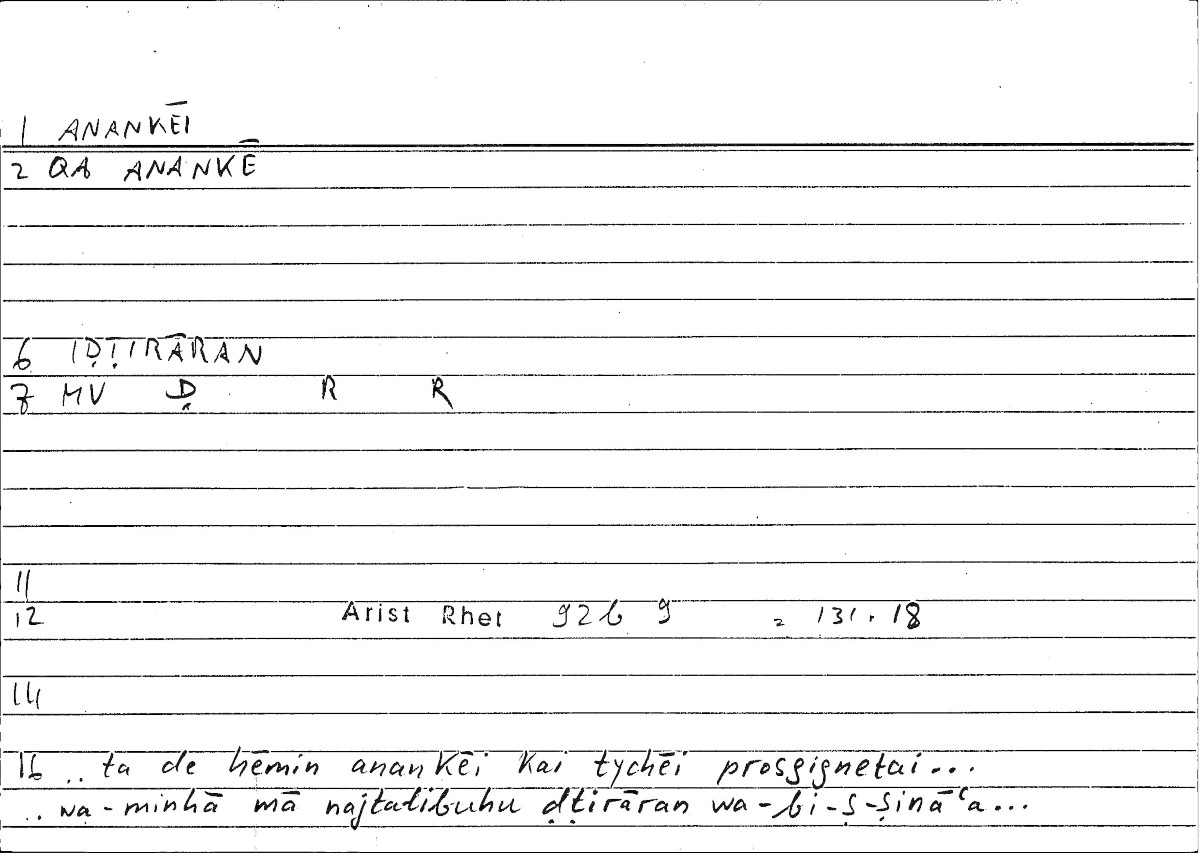 1 ANANKĒI
2 QA ANANKĒ
6 IḌṬIRĀRAN
7 MV Ḍ R R
11
12 Arist Rhet 92b 9 = 131.18
14
16 .. ta de hēmin anankēi kai tychēi prosgignetai...
.. wa-minhā mā najtalibuhu ḍṭirāran wa-bi-ṣ-ṣināʿa...